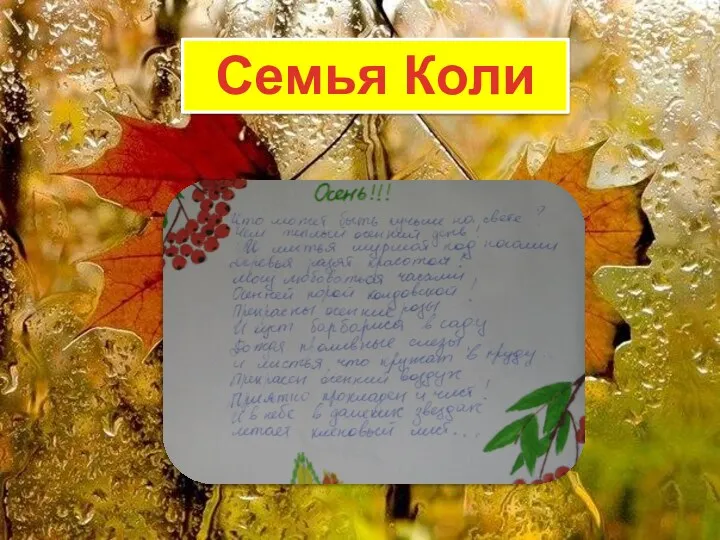 Семья Коли
Осень!!!
Что может быть лучше на свете?
Чем теплый осенний день!
И листья шуршат под ногами
Деревья разят красотой!
Могу любоваться часами
Осенней порой колдовской!
Прекрасны осенние розы
И куст барбариса в саду
Дождя проливные слезы
и листья, что кружат в пруду...
Прекрасен осенний воздух
Приятно прохладен и чист!
И в небе в далеких звездах
летает кленовый лист...